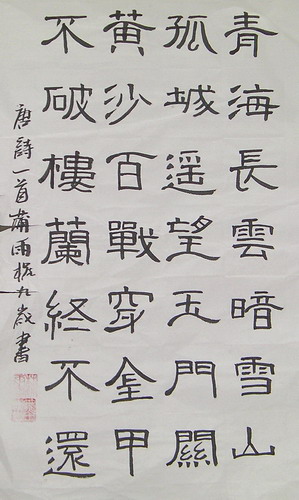 青海長雲暗雪山
孤城遥望玉門關
黃沙百戰穿金甲
不破樓蘭終不還
唐詩一首 蕭雨 九歲書